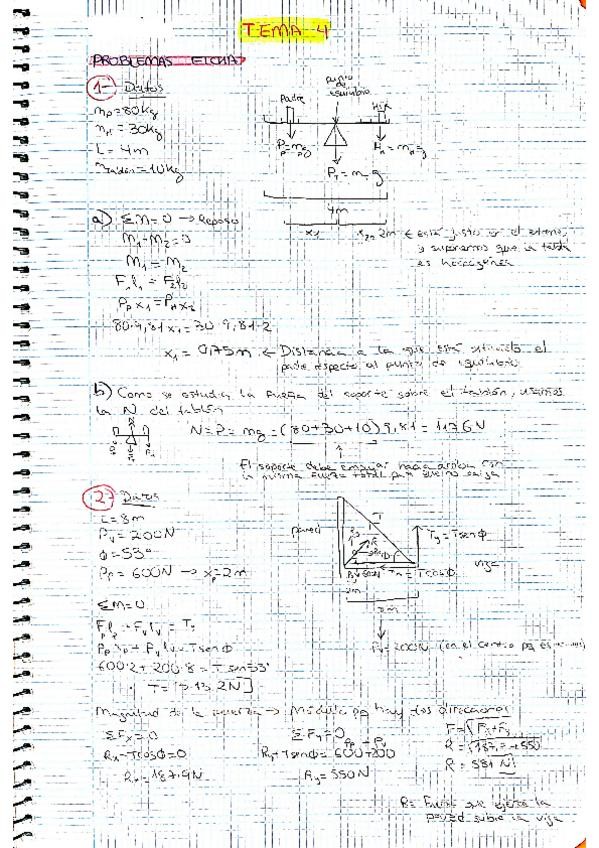 TEMA 4
PROBLEMAS FICHA
1- Datos
mp = 80kg
mH = 30kg
L = 4m
mtablón = 10kg
punto de equilibrio
Padre
Hija
4m
x1
x2 = 2m ← está justo en el extremo,
y suponemos que la tabla
es horizontal
a) ΣM=0 → Reposo
M1-M2=0
M1 = M2
F1l1 = F2l2
Pp x1 = PH x2
80·9,81 x1 = 30·9,81·2
x1 = 0,75m ← Distancia a la que está situado el
padre respecto al punto de equilibrio
b) Como se estudia la fuerza del soporte sobre el tablón, usamos
la N del tablón
N=P= mg =(80+30+10)9,81 = 1176N
El soporte debe empujar hacia arriba con
la misma fuerza total para que no caiga
2- Datos
L=8m
Pv = 200N
ϕ=53°
Pp = 600N → xp=2m
pared
T
Ty=Tsenϕ
Tx=Tcosϕ
viga
2m
Pv=200N (en el centro
ΣM=0
600·2+200·8=Tsen53°
Magnitud de la fuerza → Módulo pq hay dos direcciones
ΣFx=0
ΣFy=0
Rx-Tcosϕ=0
Ry+Tsenϕ=600+200
Ry=550N
R = 581N
R= Fuerza que ejerce la
pared sobre la viga